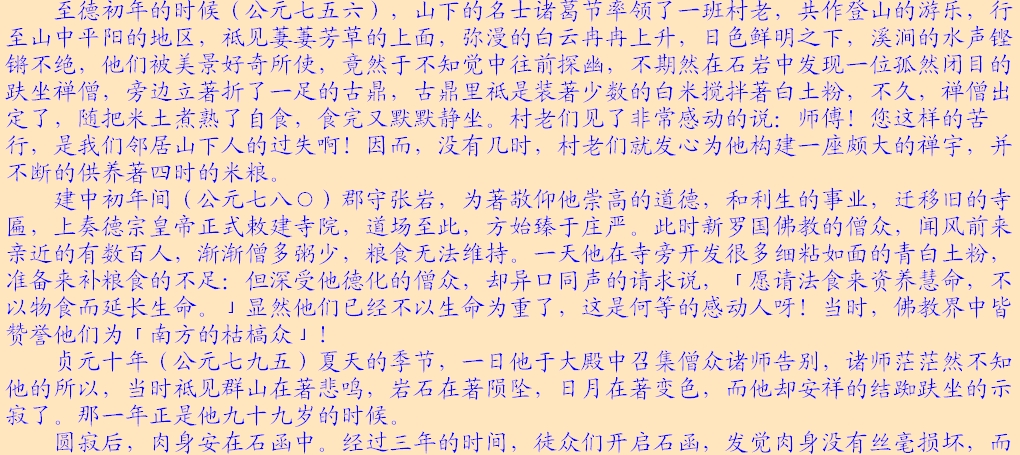 至德初年的时候（公元七五六），山下的名士诸葛节率领了一班村老，共作登山的游乐，行
至山中平阳的地区，祗见萋萋芳草的上面，弥漫的白云冉冉上升，日色鲜明之下，溪涧的水声铿
锵不绝，他们被美景好奇所使，竟然于不知觉中往前探幽，不期然在石岩中发现一位孤然闭目的
趺坐禅僧，旁边立著折了一足的古鼎，古鼎里祗是装著少数的白米搅拌著白土粉，不久，禅僧出
定了，随把米土煮熟了自食，食完又默默静坐。村老们见了非常感动的说：师傅！您这样的苦
行，是我们邻居山下人的过失啊！因而，没有几时，村老们就发心为他构建一座颇大的禅宇，并
不断的供养著四时的米粮。
建中初年间（公元七八○）郡守张岩，为著敬仰他崇高的道德，和利生的事业，迁移旧的寺
匾，上奏德宗皇帝正式敕建寺院，道场至此，方始臻于庄严。此时新罗国佛教的僧众，闻风前来
亲近的有数百人，渐渐僧多粥少，粮食无法维持。一天他在寺旁开发很多细粘如面的青白土粉，
准备来补粮食的不足：但深受他德化的僧众，却异口同声的请求说，「愿请法食来资养慧命，不
以物食而延长生命。」显然他们已经不以生命为重了，这是何等的感动人呀！当时，佛教界中皆
赞誉他们为「南方的枯槁众」！
贞元十年（公元七九五）夏天的季节，一日他于大殿中召集僧众诸师告别，诸师茫茫然不知
他的所以，当时祗见群山在著悲鸣，岩石在著陨坠，日月在著变色，而他却安祥的结跏趺坐的示
寂了。那一年正是他九十九岁的时候。
圆寂后，肉身安在石函中。经过三年的时间，徒众们开启石函，发觉肉身没有丝毫损坏，而